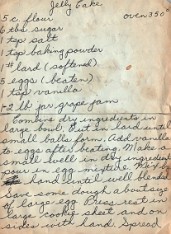 Jelly Cake
5 c. flour oven 350°
6 tbs sugar
tsp salt
tsp baking powder
# lard (softened)
5 eggs (beaten)
tsp vanilla
1-2 lb jar grape jam
Combine dry ingredients in
large bowl. Cut in lard until
small balls form. Add vanilla
to eggs after beating. Make a
small well in dry ingredients
pour in egg mixture. Mix
hand until well blended
Save some dough about size
of large egg. Press rest in
large cookie sheet and on
sides with hand. Spread